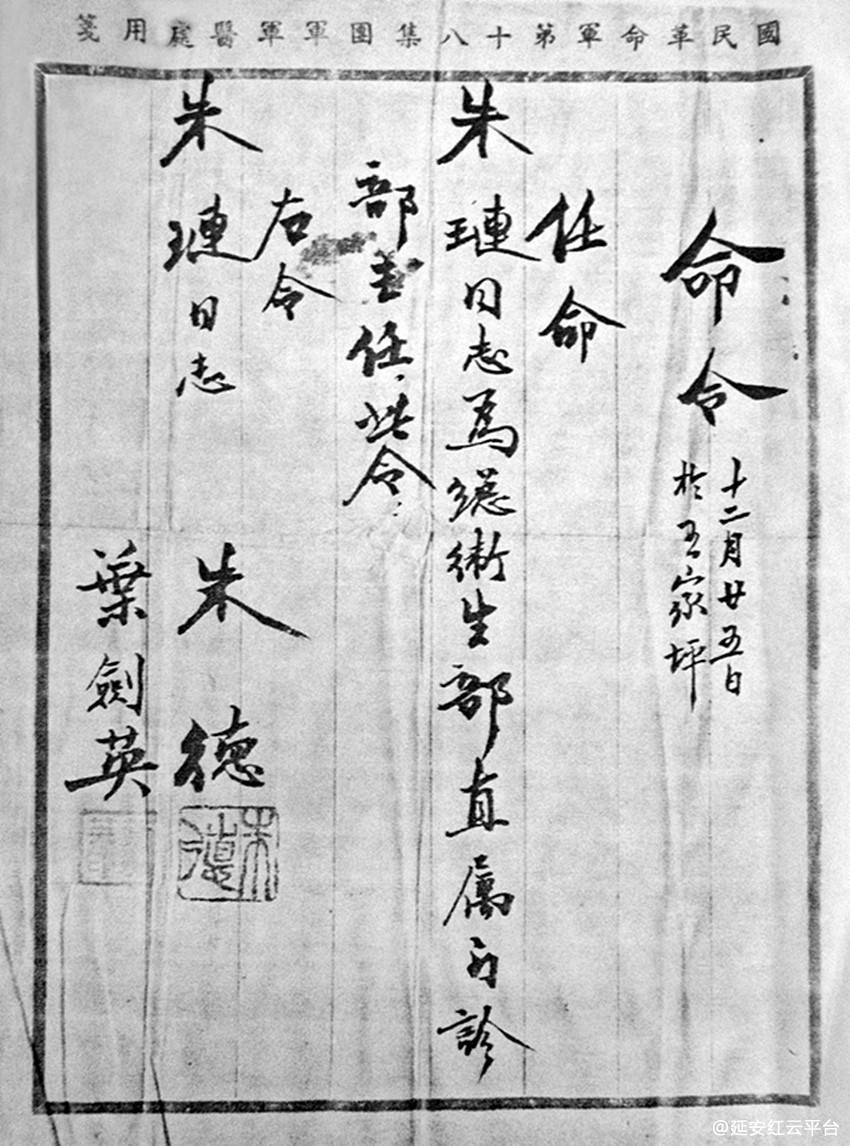 國民革命軍第十八集團軍軍醫處用箋
命令
十二月廿五日
於王家坪
任命
朱璉同志為總衛生部直属门診
部主任.此令.
右令
朱璉同志
朱德
朱德
葉劍英
@延安红云平台